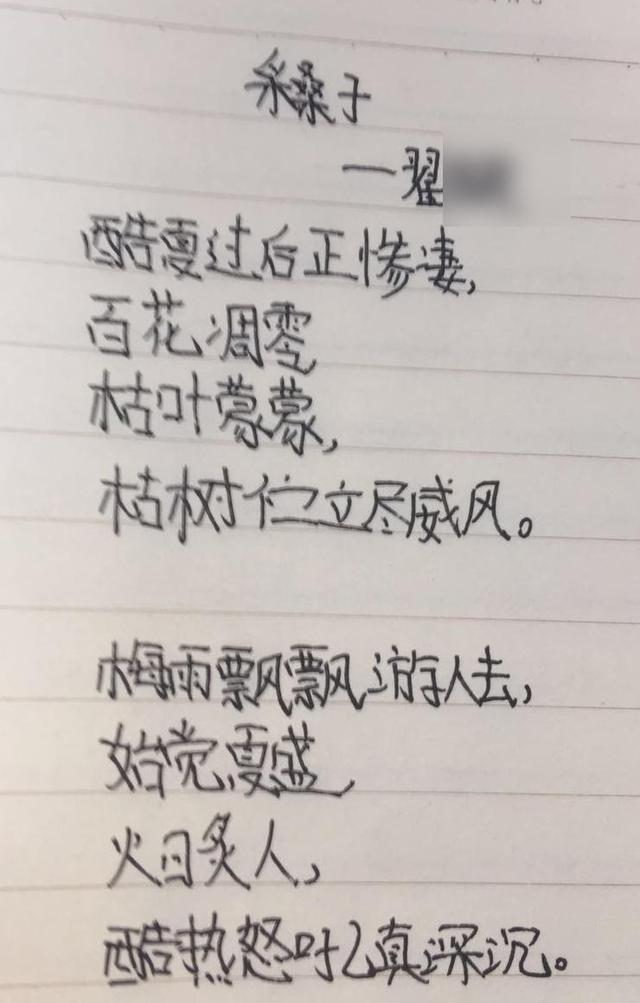 采桑子
一翟
酷夏过后正惨凄,
百花凋零
枯叶蒙蒙,
枯树伫立尽威风。
梅雨飘飘游人去,
始觉夏盛,
火日炙人,
酷热怒吖真深沉。